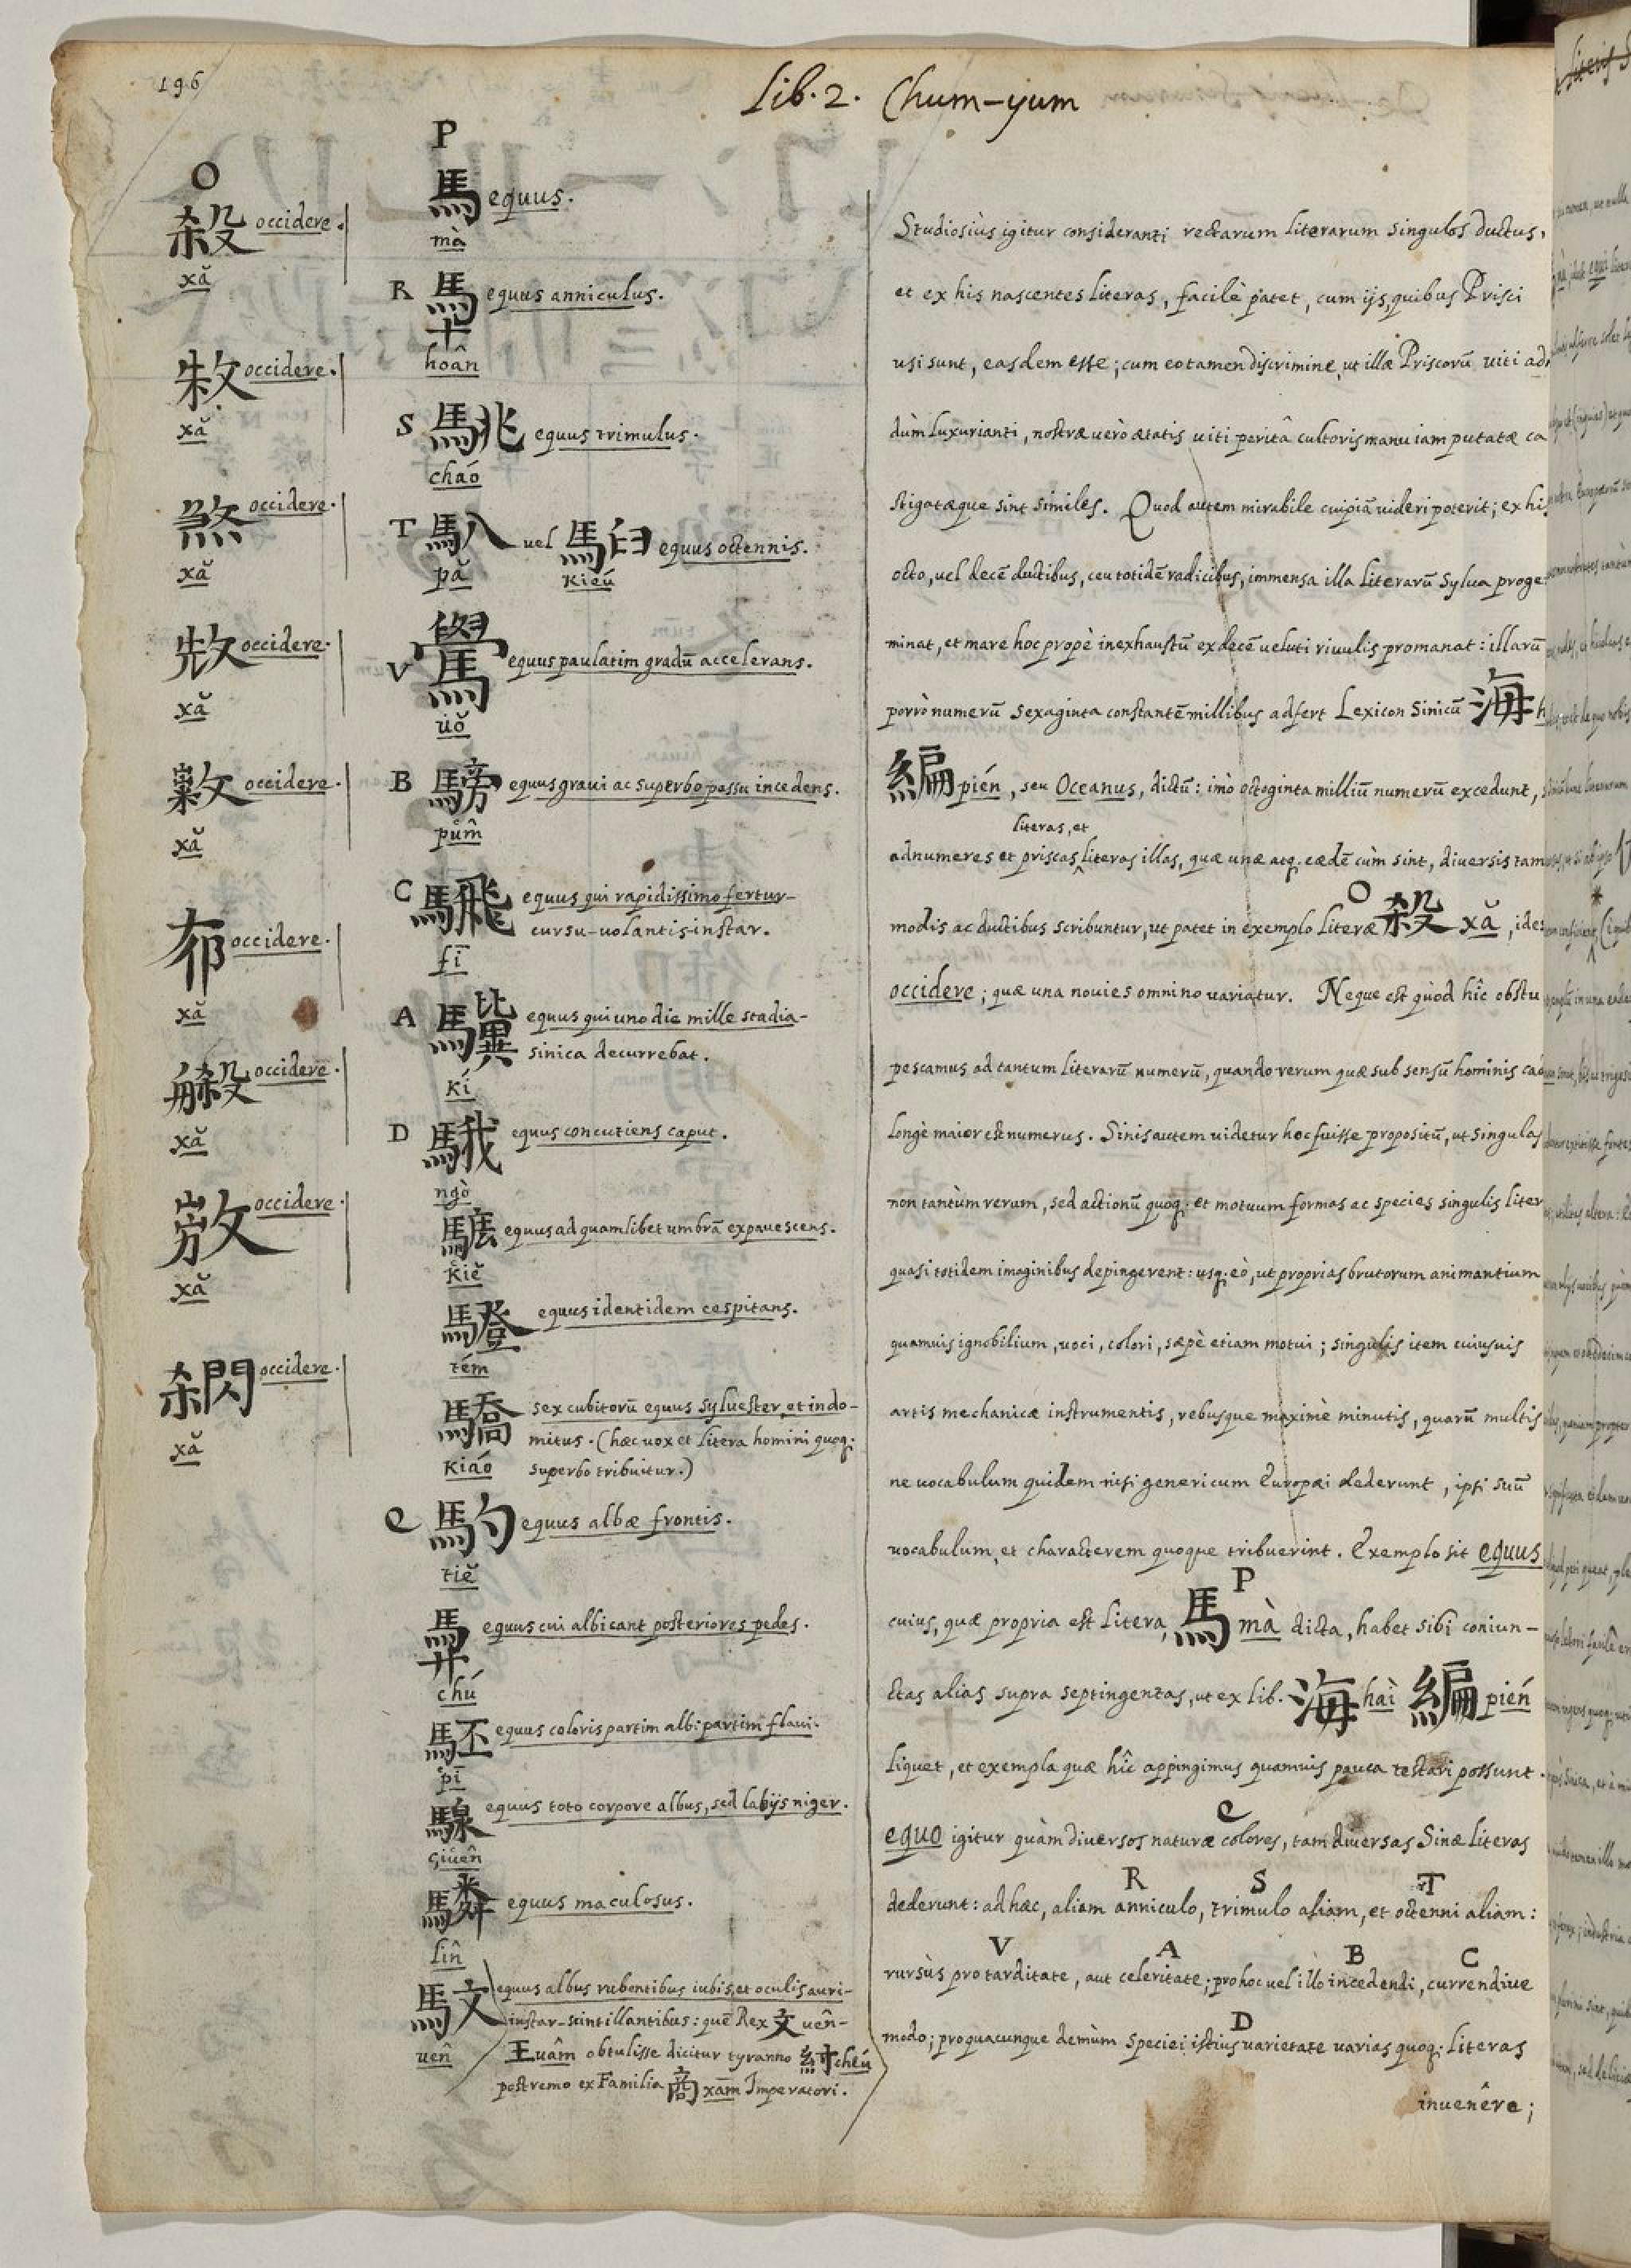 196
Lib. 2. Chum-yum
O
殺 occidere.
xǎ
occidere.
xǎ
煞 occidere.
xǎ
occidere.
xǎ
occidere.
xǎ
occidere.
xǎ
occidere.
xǎ
occidere.
xǎ
occidere.
xǎ
P
馬 equus.
mà
R 馬 equus anniculus.
hoân
S 駣 equus trimulus.
cháo
T 馬八 uel 馬臼 equus octennis.
pǎ kieú
V 鷽 equus paulatim gradū accelerans.
üǒ
B 騯 equus graui ac superbo passu incedens.
pûm
C 馬飛 equus qui rapidissimo fertur-
cursu-uolantis-instar.
fī
A equus qui uno die mille stadia-
sinica decurrebat.
kí
D 騀 equus concutiens caput.
ngò
equus ad quamlibet umbrā expauescens.
kiě
驓 equus identidem cespitans.
tém
驕 sex cubitorū equus syluester, et indo-
mitus. (hæc uox et litera homini quoq;
kiáo superbo tribuitur.)
E 馰 equus albæ frontis.
tiě
equus cui albicant posteriores pedes.
chú
駓 equus coloris partim albi partim flaui.
pī
騵 equus toto corpore albus, sed labijs niger.
çiüên
驎 equus maculosus.
lîn
馬文 equus albus rubentibus iubis, et oculis auri-
instar-scintillantibus: quē Rex 文 uên-
uên 王 uâm obtulisse dicitur tyranno 紂 chéu
postremo ex Familia 商 xām Imperatori.
Studiosiùs igitur consideranti rectarum literarum singulos ductus,
et ex his nascentes literas, facilè patet, cum ijs, quibus Prisci
usi sunt, easdem esse; cum eo tamen discrimine, ut illæ Priscorū uiti ad-
dùm luxurianti, nostræ uerò ætatis uiti peritâ cultoris manu iam putatæ ca
stigatæque sint similes. Quod autem mirabile cuipiā uideri poterit; ex his
octo, uel decē ductibus, ceu totidē radicibus, immensa illa literarū sylua proge-
minat, et mare hoc propè inexhaustū ex decē ueluti riuulis promanat: illarū
porrò numerū sexaginta constantē millibus adfert Lexicon Sinicū 海 h
編 pién, seu Oceanus, dictū: imò octoginta milliū numerū excedunt, s
literas, et
adnumeres et priscas literas illas, quæ unæ atq; eædē cùm sint, diuersis tam
O
modis ac ductibus scribuntur, ut patet in exemplo literæ 殺 xǎ, ide
occidere; quæ una nouies omnino uariatur. Neque est quòd hîc obstu
pescamus ad tantum literarū numerū, quando rerum quæ sub sensū hominis cad
longè maior est numerus. Sinis autem uidetur hoc fuisse propositū, ut singulas
non tantùm rerum, sed actionū quoq; et motuum formas ac species singulis liter
quasi totidem imaginibus depingerent: usq; eò, ut proprias brutorum animantium
quamuis ignobilium, uoci, colori, sæpè etiam motui; singulis item cuiusuis
artis mechanicæ instrumentis, rebusque maximè minutis, quarū multis
ne uocabulum quidem nisi genericum Europæi dederunt, ipsi suū
uocabulum, et characterem quoque tribuerint. Exemplo sit equus
P
cuius, quæ propria est litera, 馬 mà dicta, habet sibi coniun-
ctas alias supra septingentas, ut ex lib. 海 haì 編 pién
liquet, et exempla quæ hîc appingimus quamuis pauca testari possunt.
E
equo igitur quàm diuersos natura colores, tam diuersas Sinæ literas
R S T
dederunt: ad hæc, aliam anniculo, trimulo aliam, et octenni aliam:
V A B C
rursùs pro tarditate, aut celeritate; pro hoc uel illo incedendi, currendiue
D
modo; pro quacunque demùm speciei istius uarietate uarias quoq; literas
inuenêre;